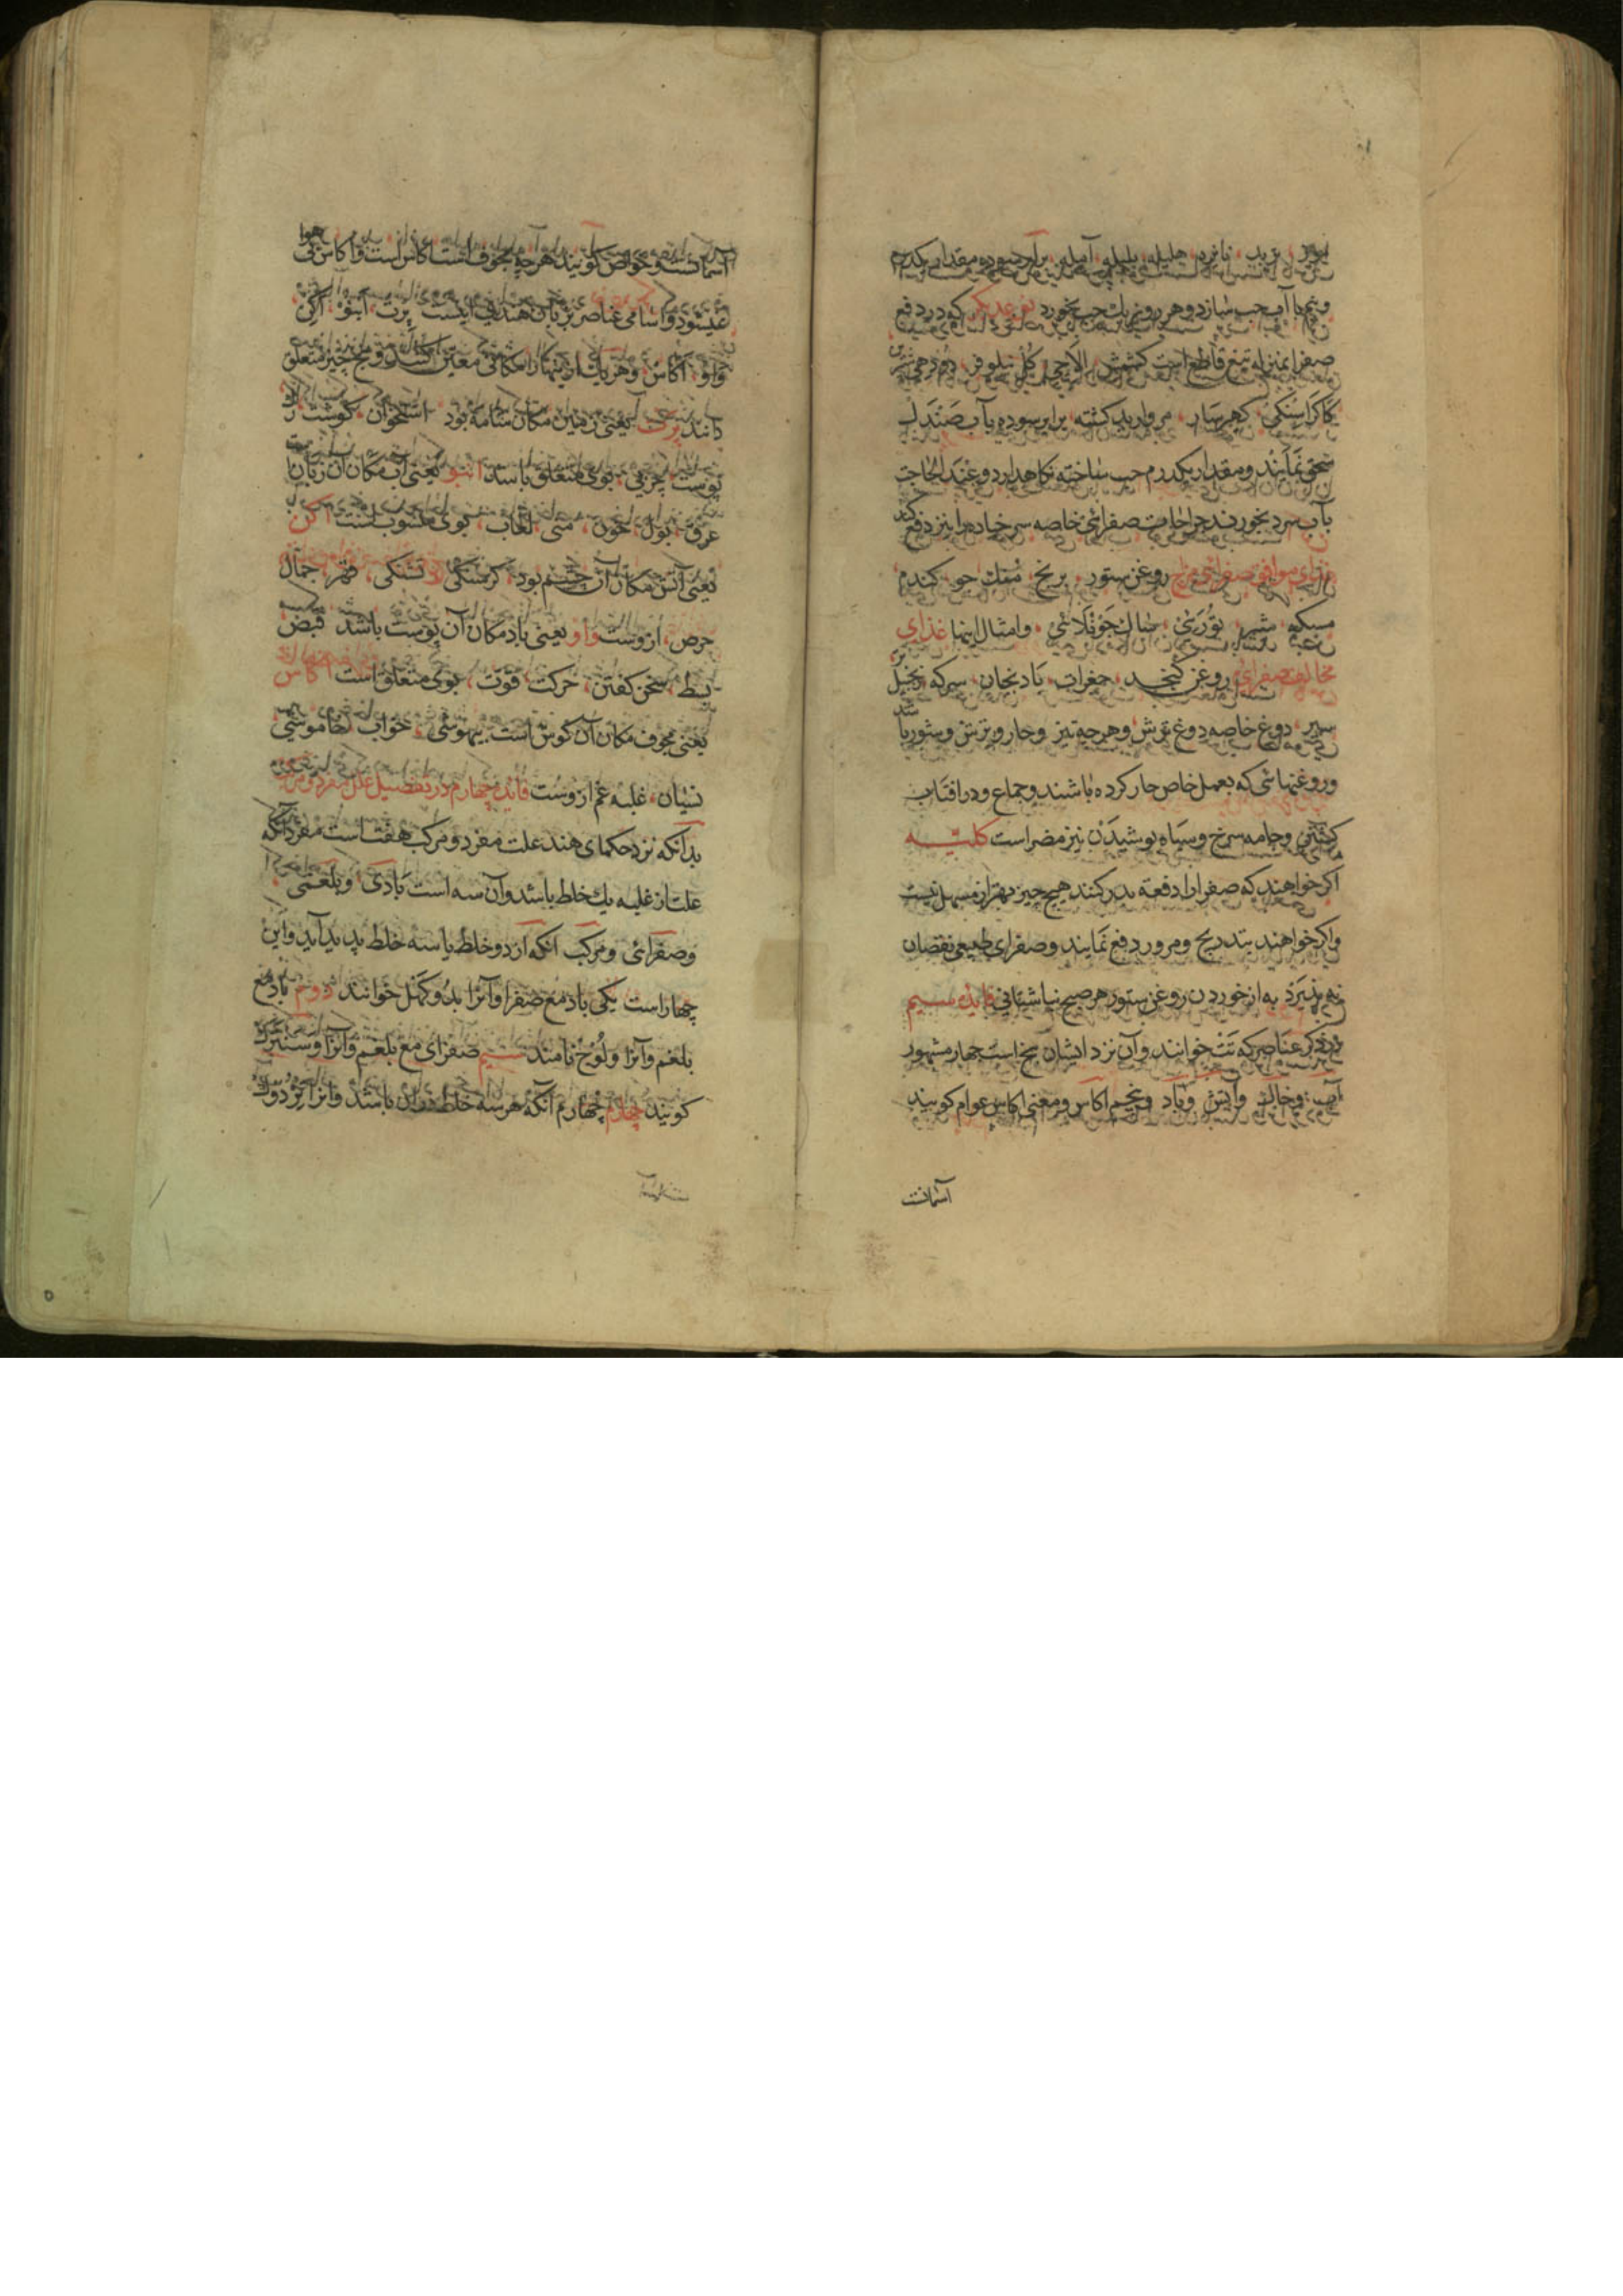 تربد، هلیله، بلیله، آمله، برابر سوده مقدار یکدرم
ونیم با آب حب سازد و هر روز یك حب بخورد نوعدیگر که در دفع
صفرا بمنزله تیغ قاطع است کشمش الاچی کل نیلوفر
کاکراسنگی مروارید کشته برابر سوده بآب صندل
سحق نمایند و مقدار یکدرم حب ساخته نکاهدارد و عند الحاجت
بآب سرد بخورند حرارت صفرائی خاصه سر خباده را نیز دفع کند
غذای موافق صفرای مزاج روغن ستور برنج، جو کندم
مسکه شیر تورئی ساك چونلائی وامثال اینها غذای
مخالف صفرای روغن کنجد جغرات بادنجان سرکه زنجبیل
سیر دوغ خاصه دوغ ترش و هرچه تیز و حار و ترش و شور باشد
و روغنهائی که بعمل خاص حار کرده باشند و جماع و در افتاب
کشتن و جامه سرخ و سیاه پوشیدن نیز مضر است کلیه
اکر خواهند که صفرا را دفعة بدر کنند هیچ چیز بهتر از مسهل نیست
و اکر خواهند بتدریج و مرور دفع نمایند و صفرای طبیعی نقصان
نه پذیرد به از خوردن روغن ستور هر صبح نباشد فایده سیم
در ذکر عناصر که تت خوانند و آن نزد ایشان پنج است چهار مشهور
آب و خاك و آتش و باد و پنجم اکاس و معنی اکاس عوام کویند
آسمانست
آسمانست و خواص کویند هر چه مجوف است اکاس است و اکاس بی هوا
نمیشود و اسامی عناصر بزبان هندی اینست پرت، آبنو، اکن
واو، اکاس و هر یك از اینها را مکانی معین کنند و پنج چیز متعلق
دانند پرت یعنی زمین مکان شامه بود استخوان کوشت رك
پوست چربی بوی متعلق باشد ابنو یعنی آب مکان آن زبان است
عرق، بول، خون، منی، لعاب، بوی منسوب است اکن
یعنی آتش مکان آن چشم بود کرسنکی تشنکی، قهر، جمال
حرص، ازوست واو یعنی باد مکان آن پوست باشد قبض
بسط سخن کفتن، حرکت، قوت، بوی متعلق است اکاس
یعنی مجوف مکان آن کوش است بیهوشی خواب خاموشی
نسیان، غلبه غم ازوست فایده چهارم در تفصیل علل مفرد و مرکب
بدانکه نزد حکمای هند علت مفرد و مرکب هفت است مفرد آنکه
علت از غلبه یك خلط باشد و آن سه است بادی و بلغمی
و صفرائی و مرکب آنکه از دو خلط یا سه خلط پدید آید و این
چهار است یکی باد مع صفرا و آنرا خوانند دوم باد مع
بلغم و آنرا نامند سیم صفرای مع بلغم و آنرا
کویند چهارم چهارم آنکه هر سه خلط دران باشد و آنرا تردوك